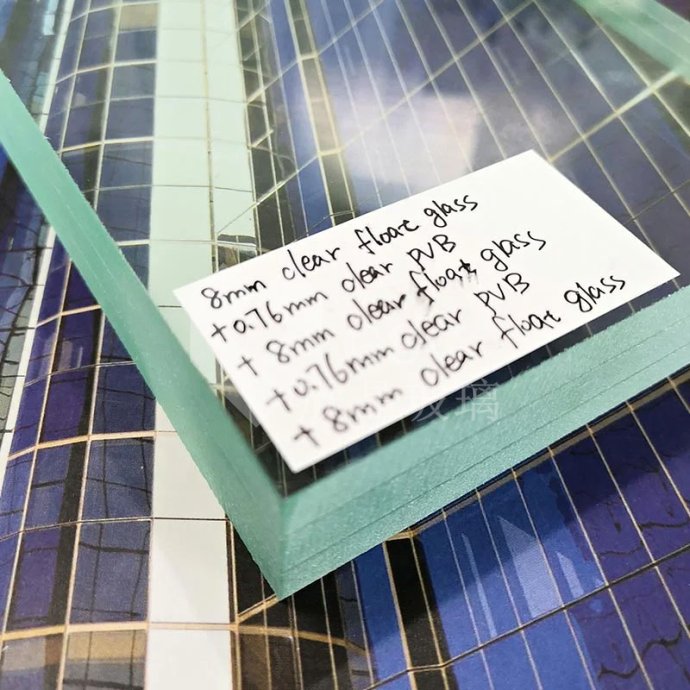 8mm clear float glass
+0.76mm clear PVB
+ 8mm clear float glass
+0.76mm clear PVB
+8mm clear float glass
玻璃